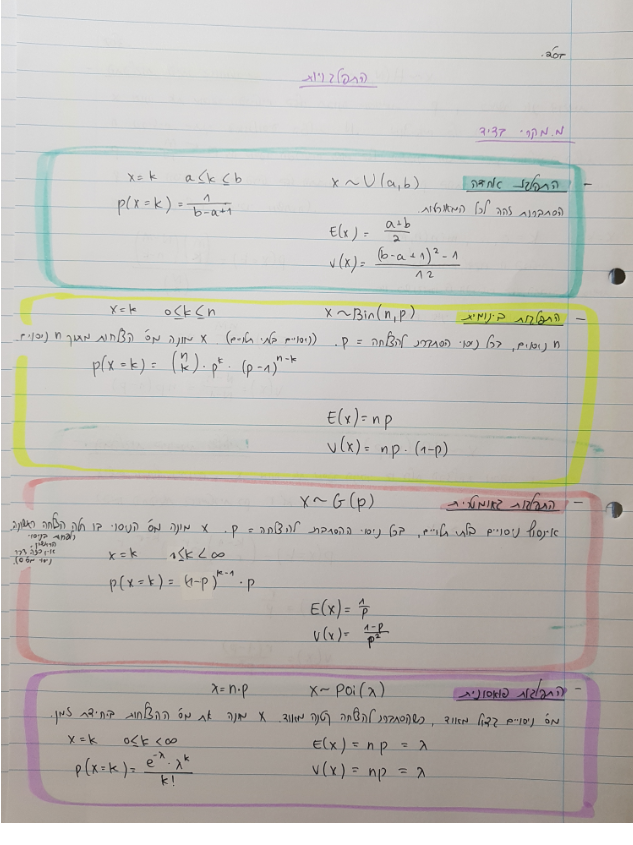 התפלגויות
מ.מקרי בדיד
- התפלגות אחידה X~U(a,b) X=k a≤k≤b
הסתברות זהה לכל המאורעות. P(X=k)= 1/(b-a+1)
E(X)= (a+b)/2
V(X)= ((b-a+1)²-1)/12
- התפלגות בינומית X~Bin(n,p) X=k 0≤k≤n
n ניסויים, בכל ניסוי הסתברות להצלחה = p. (ניסויים בלתי תלויים) X מונה מס' הצלחות מתוך n ניסויים
P(X=k)= (n k)·p^k·(p-1)^(n-k)
E(X)=np
V(X)= np·(1-p)
- התפלגות גאומטרית X~G(p)
אינסוף ניסויים בלתי תלויים, בכל ניסוי ההסתברות להצלחה = p. X מונה מס' הניסוי בו חלה הצלחה ראשונה
X=k 1≤k<∞
P(X=k)= (1-p)^(k-1)·p
E(X)= 1/p
V(X)= (1-p)/p²
- התפלגות פואסונית X~Poi(λ) λ=n·p
מס' ניסויים גדול מאוד, כשהסתברות להצלחה קטנה מאוד. X מונה את מס' ההצלחות ביחידת זמן.
X=k 0≤k<∞ E(X)= np = λ
P(X=k)= (e^-λ·λ^k)/k! V(X)= np = λ